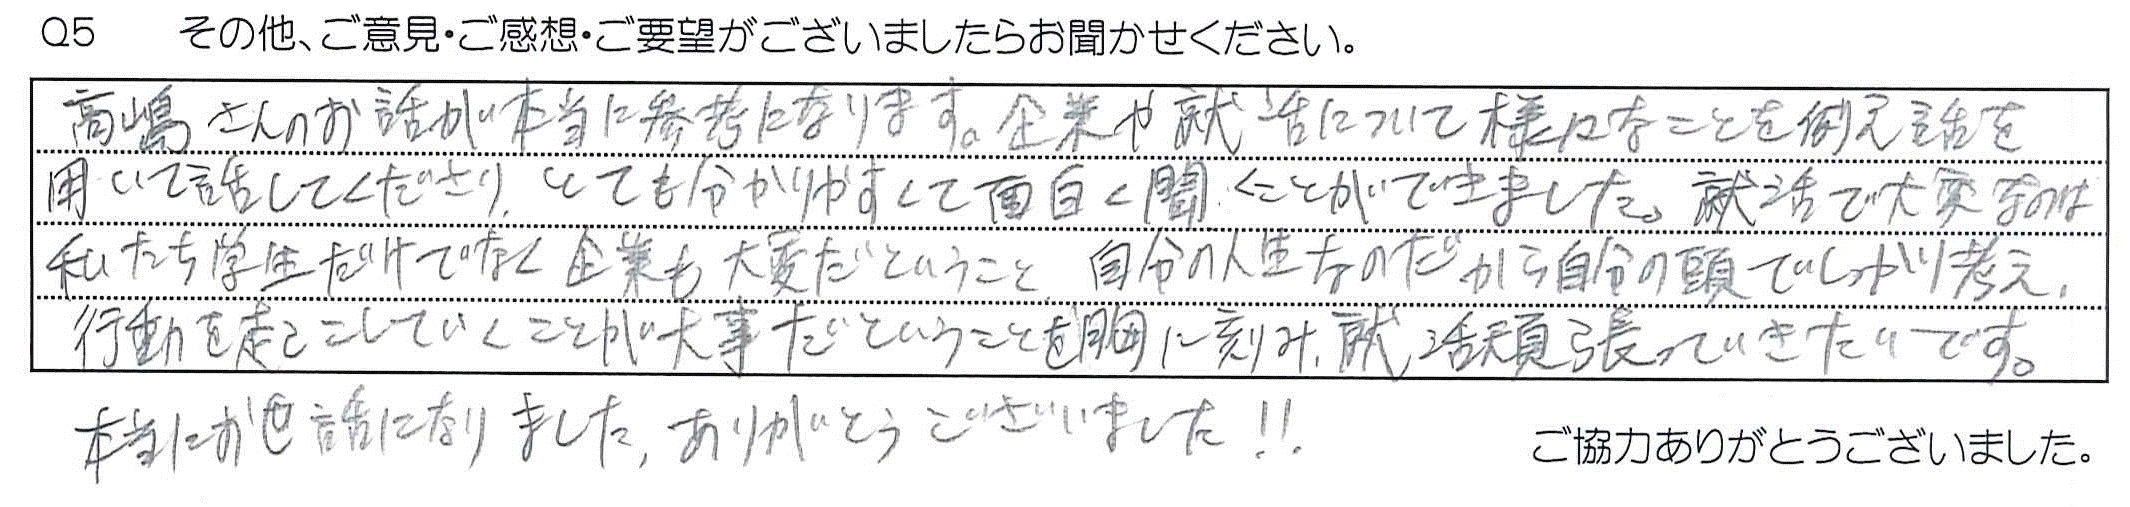 Q5 その他、ご意見・ご感想・ご要望がございましたらお聞かせください。
高嶋さんのお話が本当に参考になります。企業や就活について様々なことを例え話を
用いて話してくださり、とても分かりやすくて面白く聞くことができました。就活で大変なのは
私たち学生だけでなく企業も大変だということ、自分の人生なのだから自分の頭でしっかり考え、
行動を起こしていくことが大事だということを胸に刻み、就活頑張っていきたいです。
本当にお世話になりました、ありがとうございました!!
ご協力ありがとうございました。